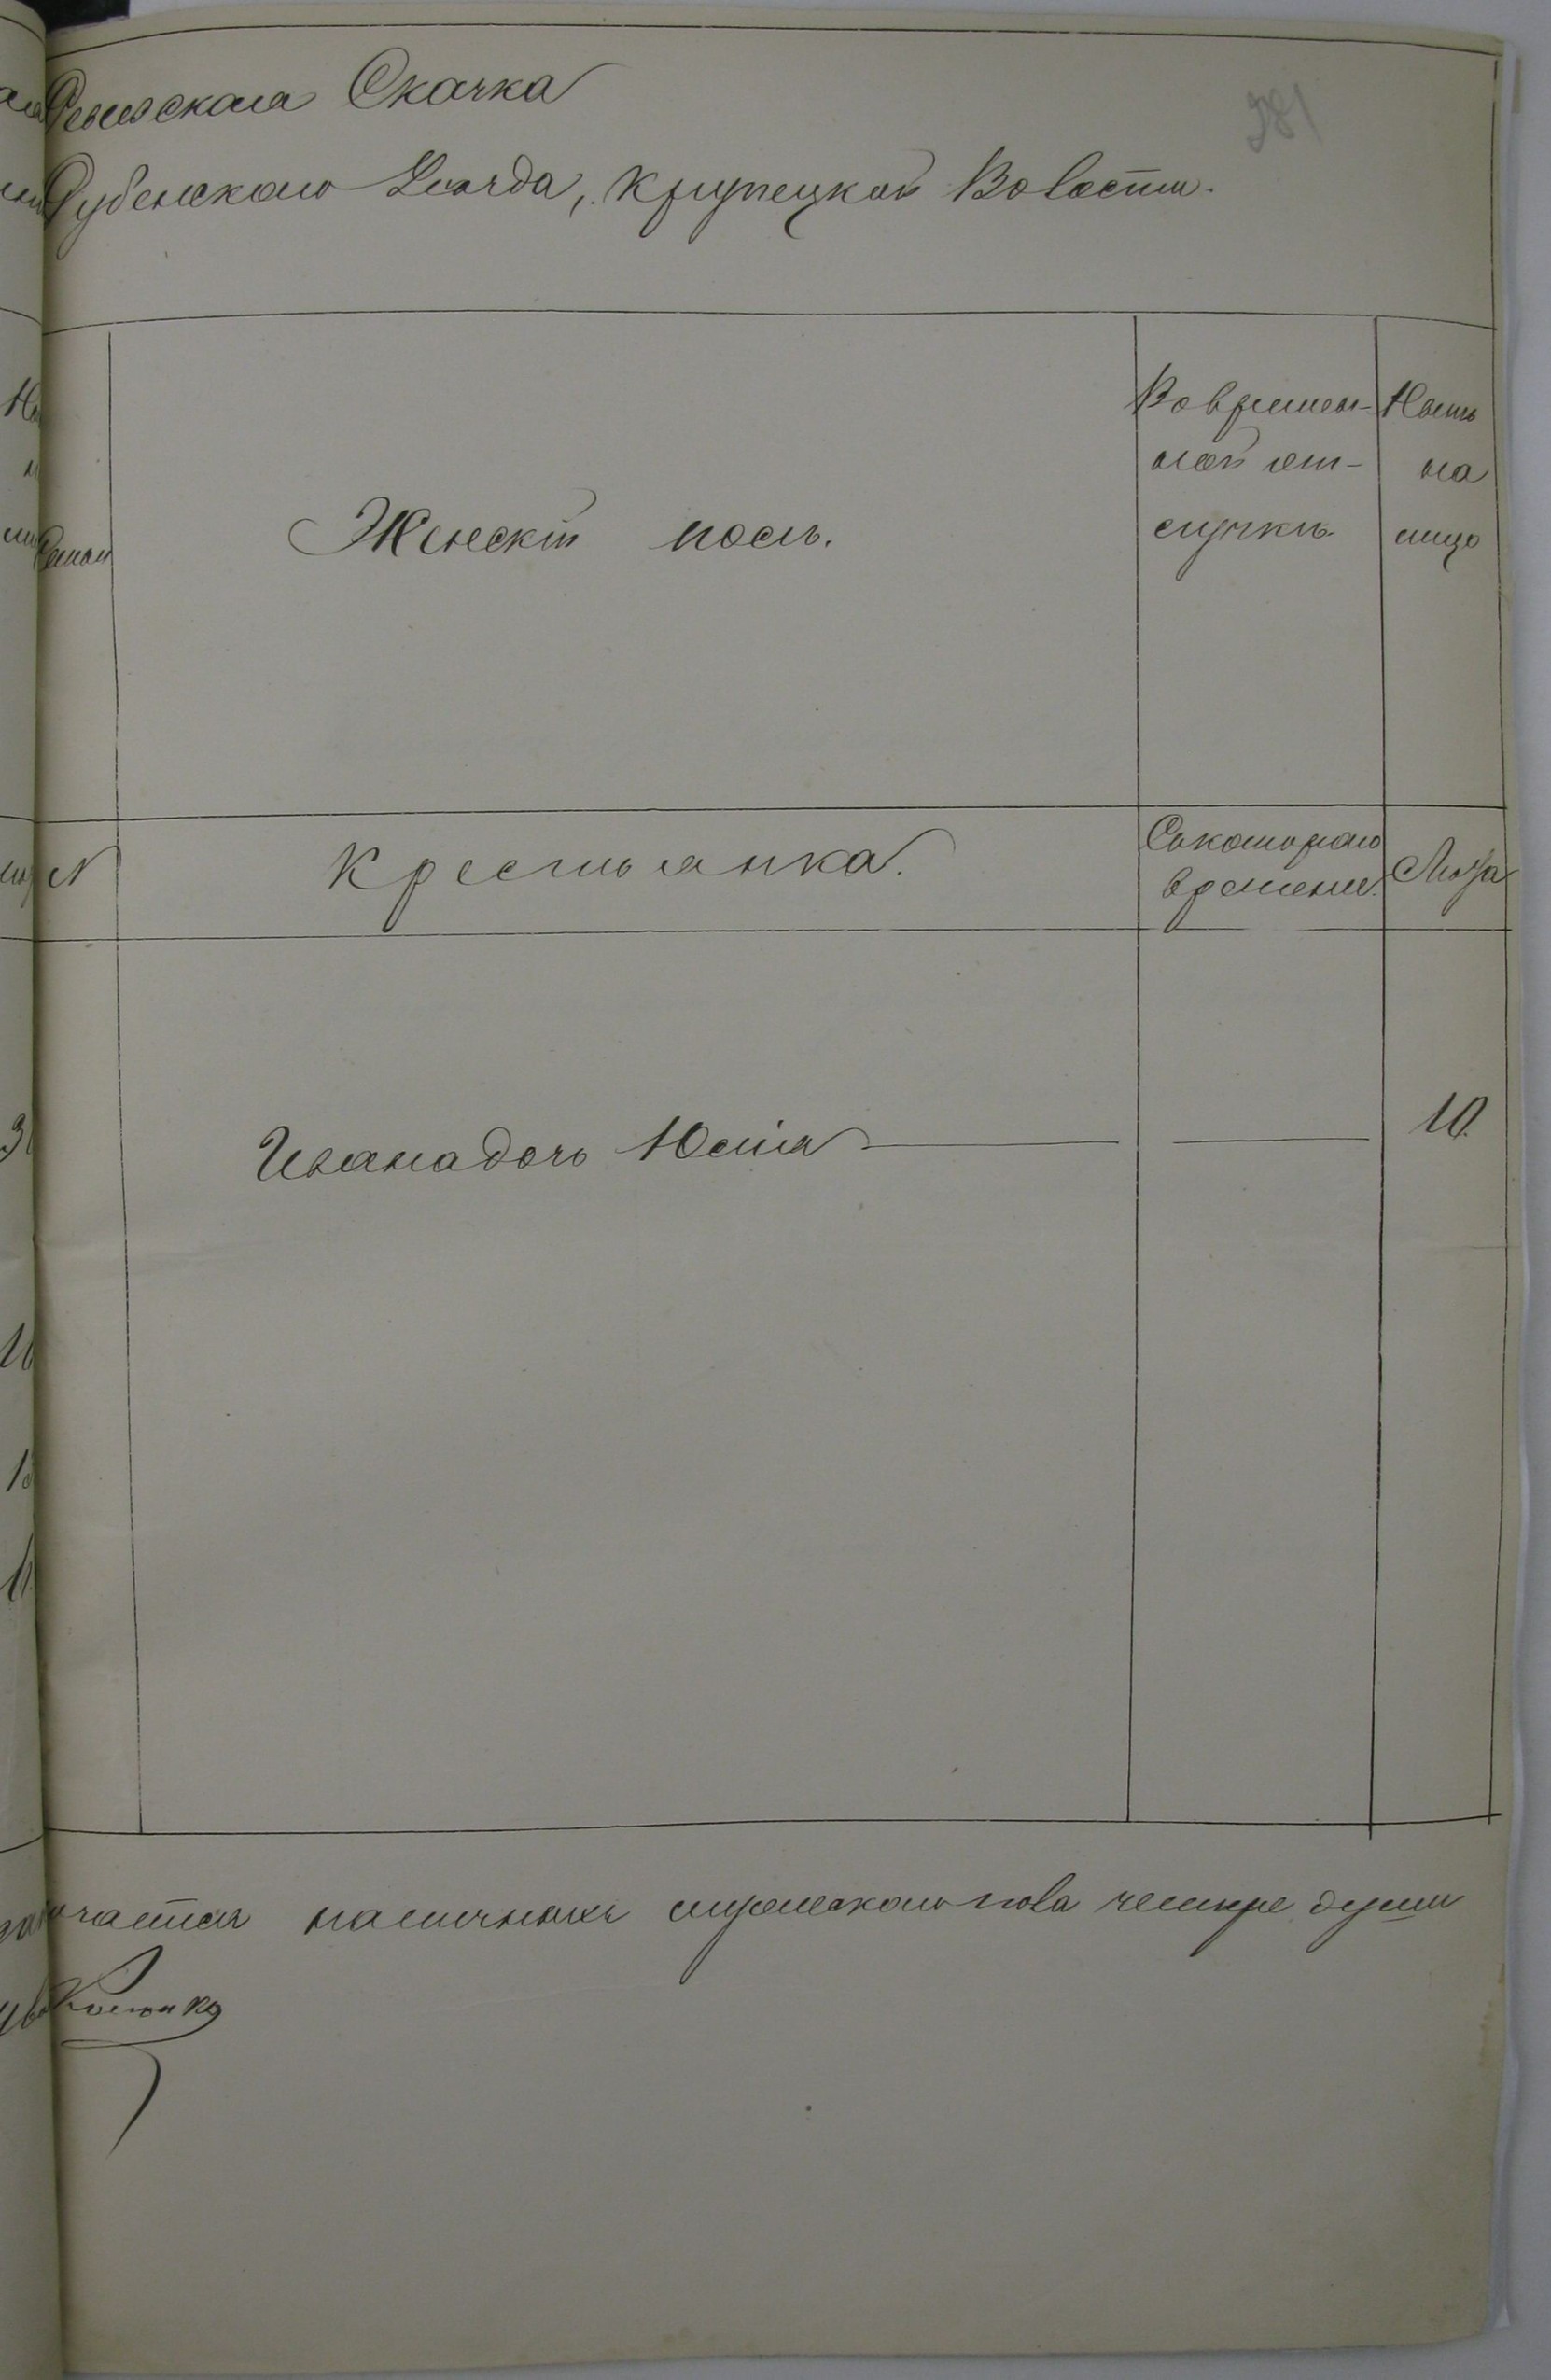 Ревизская Скачка
381
Дубенскаго Уѣзда, Крупецкой Волости.
Семьи
Женскій полъ.
Во времен-
ной от-
лучкѣ
Нынѣ
на
лицо
N
Крестьянка.
Съкотораго
времени.
Лѣта
Иванадочь Юлія
10.
чается наличныхъ мужескаго пола четыре души